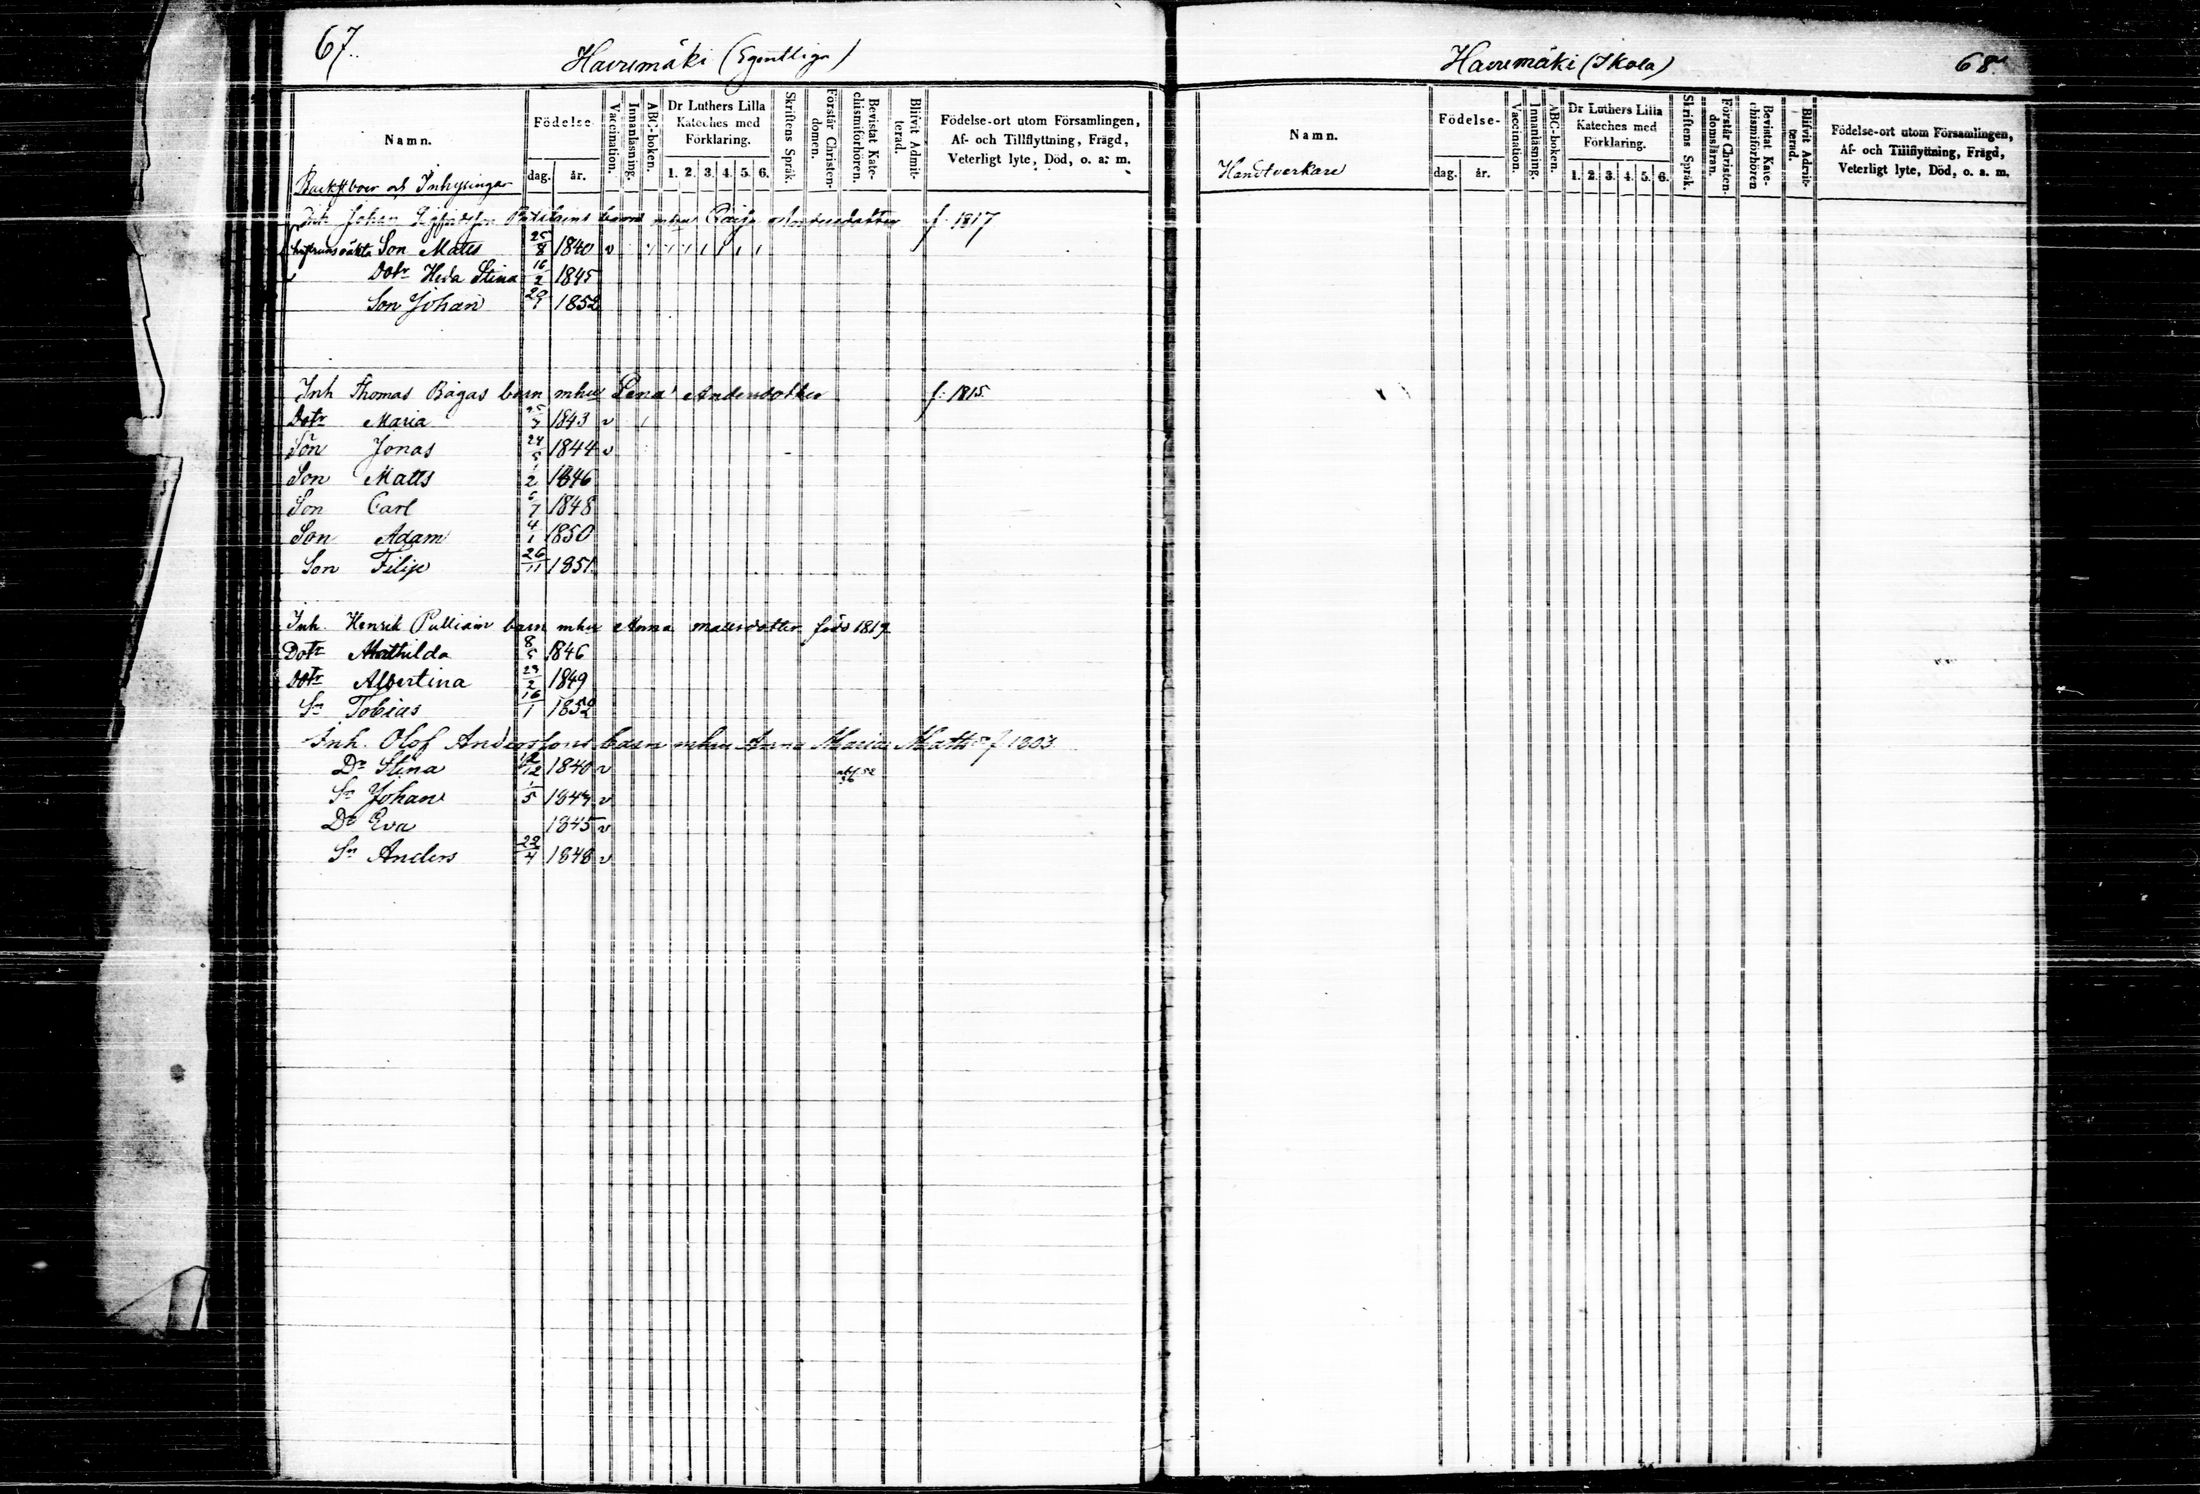 67.
Havremäki (Egentliga)
Namn.
Födelse
dag.
år.
Vaccination.
Innanläsning.
ABC-boken.
Dr Luthers Lilla
Kateches med
Förklaring.
1. 2. 3. 4. 5. 6.
Skriftens Språk.
Förstår Christen-
domen.
Bevistat Kate-
chismiförhören.
Blifvit Admit-
terad.
Födelse-ort utom Församlingen,
Af- och Tillflyttning, Frägd,
Veterligt lyte, Död, o. a. m.
och Inhysingar
Inh Johan barn mhu Andersdotter f. 1817
Son Matts 25/8 1840 v
Dotr Heda Stina 16/2 1845
Son Johan 1852
Inh Thomas Bågas barn mhu Lena Andersdotter f. 1815
Dotr Maria 1843 v
Son Jonas 24/5 1844 v
Son Matts 1/2 1846
Son Carl 6/7 1848
Son Adam 4/1 1850
Son Filip 26/11 1851.
Inh. Henrik barn mhu Anna mattsdotter föds 1819
Dotr Mathilda 8/5 1846
Dotr Albertina 23/2 1849
Sn Tobias 16/1 1852
Inh. Olof Anderssons barn mhu Anna Maria f 1803
Dr Stina 1840 v
Sn Johan 1/5 1843 v
Dr Eva 1845 v
Sn Anders 22/4 1848 v
Havremäki (Skola)
68.
Namn.
Födelse-
dag.
år.
Vaccination.
Innanläsning.
ABC-boken.
Dr Luthers Lilla
Kateches med
Förklaring.
1. 2. 3. 4. 5. 6.
Skriftens Språk.
Förstår Christen-
domsläran.
Bevistat Kate-
chismiförhören
Blifvit Admit-
terad.
Födelse-ort utom Församlingen,
Af- och Tillflyttning, Frägd,
Veterligt lyte, Död, o. a. m.
Handtverkare